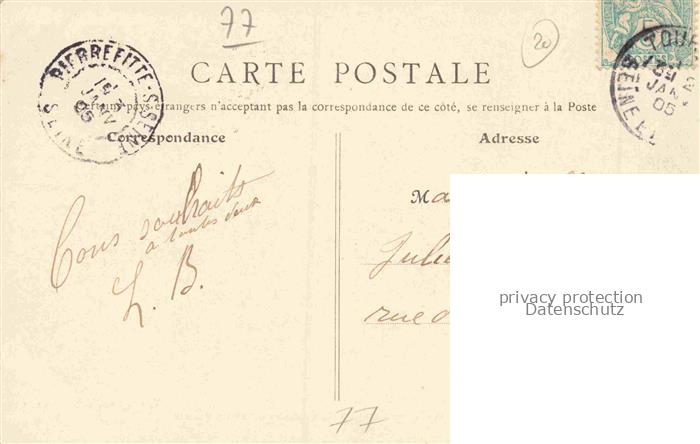 77
20
CARTE POSTALE
Certains pays étrangers n'acceptent pas la correspondance de ce côté, se renseigner à la Poste
PIERREFITTE-S-SEINE
SEINE
JANV
05
SEINE ET
JAN
05
Correspondance
Adresse
Bons souhaits
à toutes deux
L. B.
Ma
Juli
rue d
privacy protection
Datenschutz
77